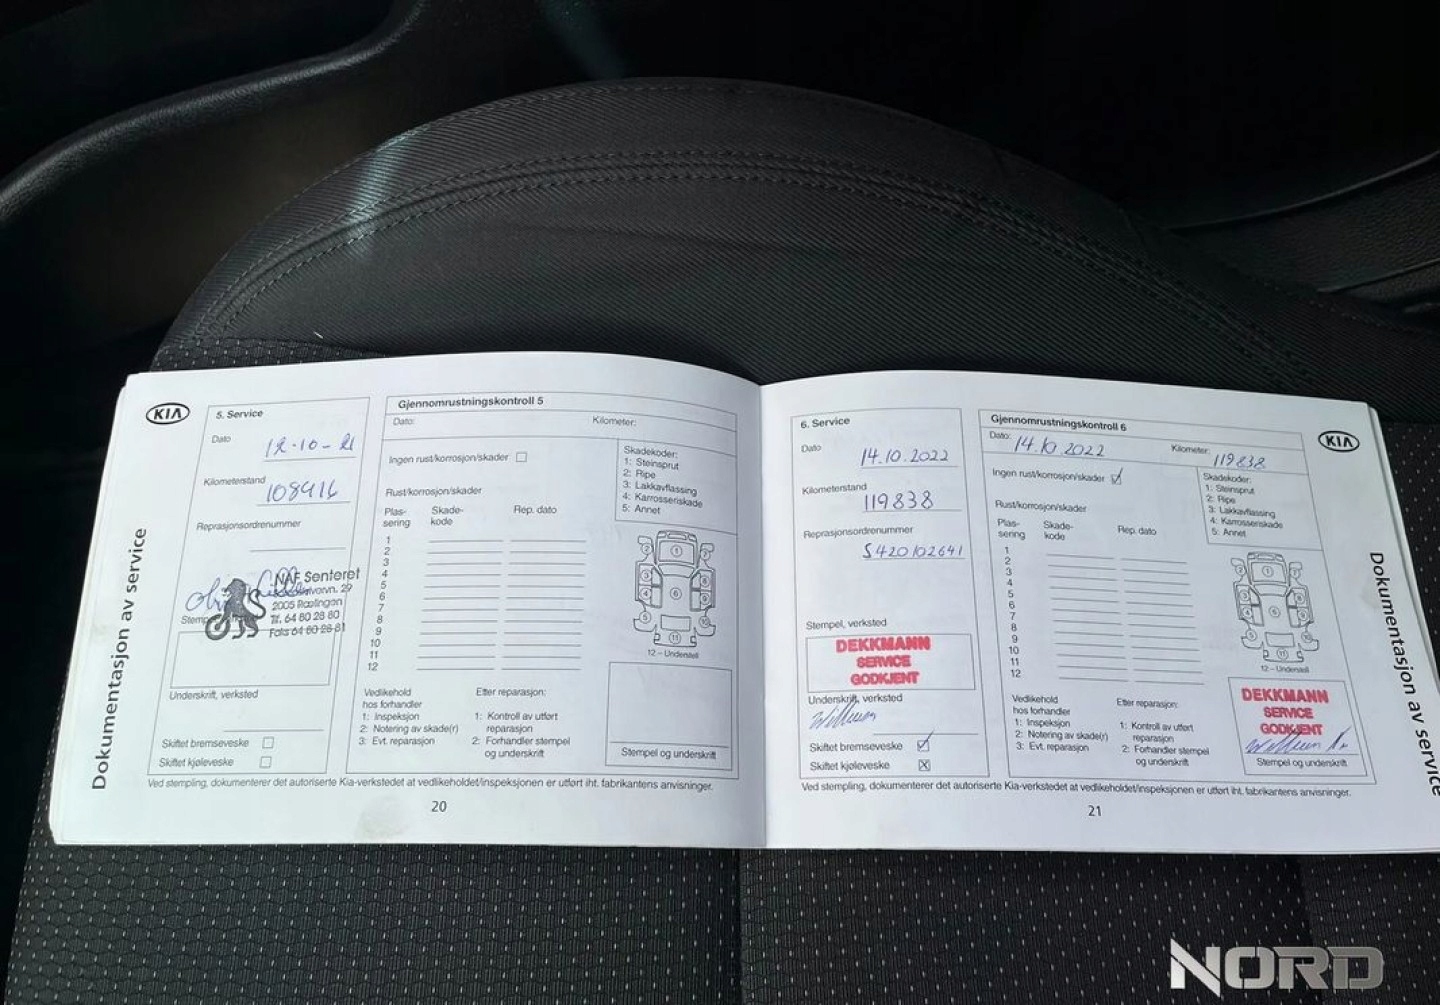 KIA
Dokumentasjon av service
5. Service
Dato
12-10-21
Kilometerstand
108416
Reprasjonsordrenummer
NAF Senteret
2005 Rælingen
Tlf. 64 80 28 80
Faks 64 80 28 81
Underskrift, verksted
Skiftet bremseveske
Skiftet kjøleveske
Gjennomrustningskontroll 5
Dato:
Kilometer:
Ingen rust/korrosjon/skader
Rust/korrosjon/skader
Plas-
sering
Skade-
kode
Rep. dato
1
2
3
4
5
6
7
8
9
10
11
12
Skadekoder:
1: Steinsprut
2: Ripe
3: Lakkavflassing
4: Karrosseriskade
5: Annet
12 – Understell
Vedlikehold
hos forhandler
1: Inspeksjon
2: Notering av skade(r)
3: Evt. reparasjon
Etter reparasjon:
1: Kontroll av utført
reparasjon
2: Forhandler stempel
og underskrift
Stempel og underskrift
Ved stempling, dokumenterer det autoriserte Kia-verkstedet at vedlikeholdet/inspeksjonen er utført iht. fabrikantens anvisninger.
20
6. Service
Dato
14.10.2022
Kilometerstand
119838
Reprasjonsordrenummer
S420102641
Stempel, verksted
DEKKMANN
SERVICE
GODKJENT
Underskrift, verksted
Skiftet bremseveske
Skiftet kjøleveske
Gjennomrustningskontroll 6
Dato: 14.10.2022
Kilometer: 119838
Ingen rust/korrosjon/skader
Rust/korrosjon/skader
Plas-
sering
Skade-
kode
Rep. dato
1
2
3
4
5
6
7
8
9
10
11
12
Skadekoder:
1: Steinsprut
2: Ripe
3: Lakkavflassing
4: Karrosseriskade
5: Annet
12 – Understell
Vedlikehold
hos forhandler
1: Inspeksjon
2: Notering av skade(r)
3: Evt. reparasjon
Etter reparasjon:
1: Kontroll av utført
reparasjon
2: Forhandler stempel
og underskrift
DEKKMANN
SERVICE
GODKJENT
Stempel og underskrift
Ved stempling, dokumenterer det autoriserte Kia-verkstedet at vedlikeholdet/inspeksjonen er utført iht. fabrikantens anvisninger.
21
KIA
Dokumentasjon av service
NORD